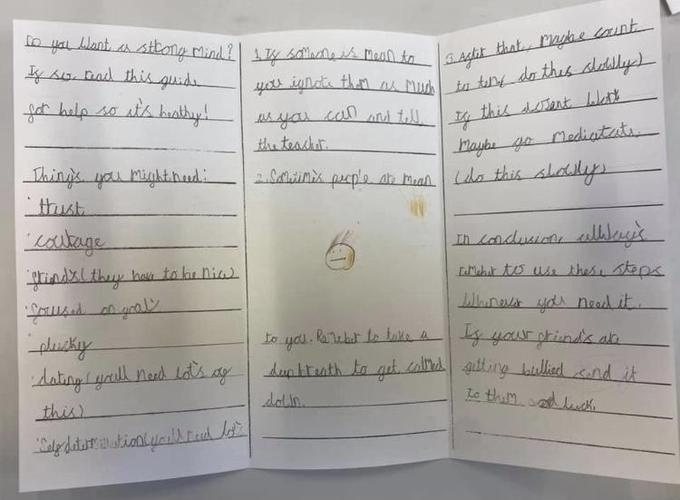 Do you Want a strong mind?
If so, read this guide
for help so it's healthy!
Thing's you might need:
trust
courage
friends (they have to be nice)
focused on goals
plucky
daring (youll need lot's of
this)
Self determination (you'll need lots
1. If someone is mean to
you ignore them as much
as you can and tell
the teacher.
2. Sometimes people are mean
to you. Remeber to take a
deep breath to get calmed
down.
3. After that, Maybe count
to ten (do this slowly)
If this doesent Work
Maybe go
(do this slowly)
In conclusion, allway's
remeber to use these steps
Whenever you need it.
If your friend's are
getting bullied send it
to them luck.